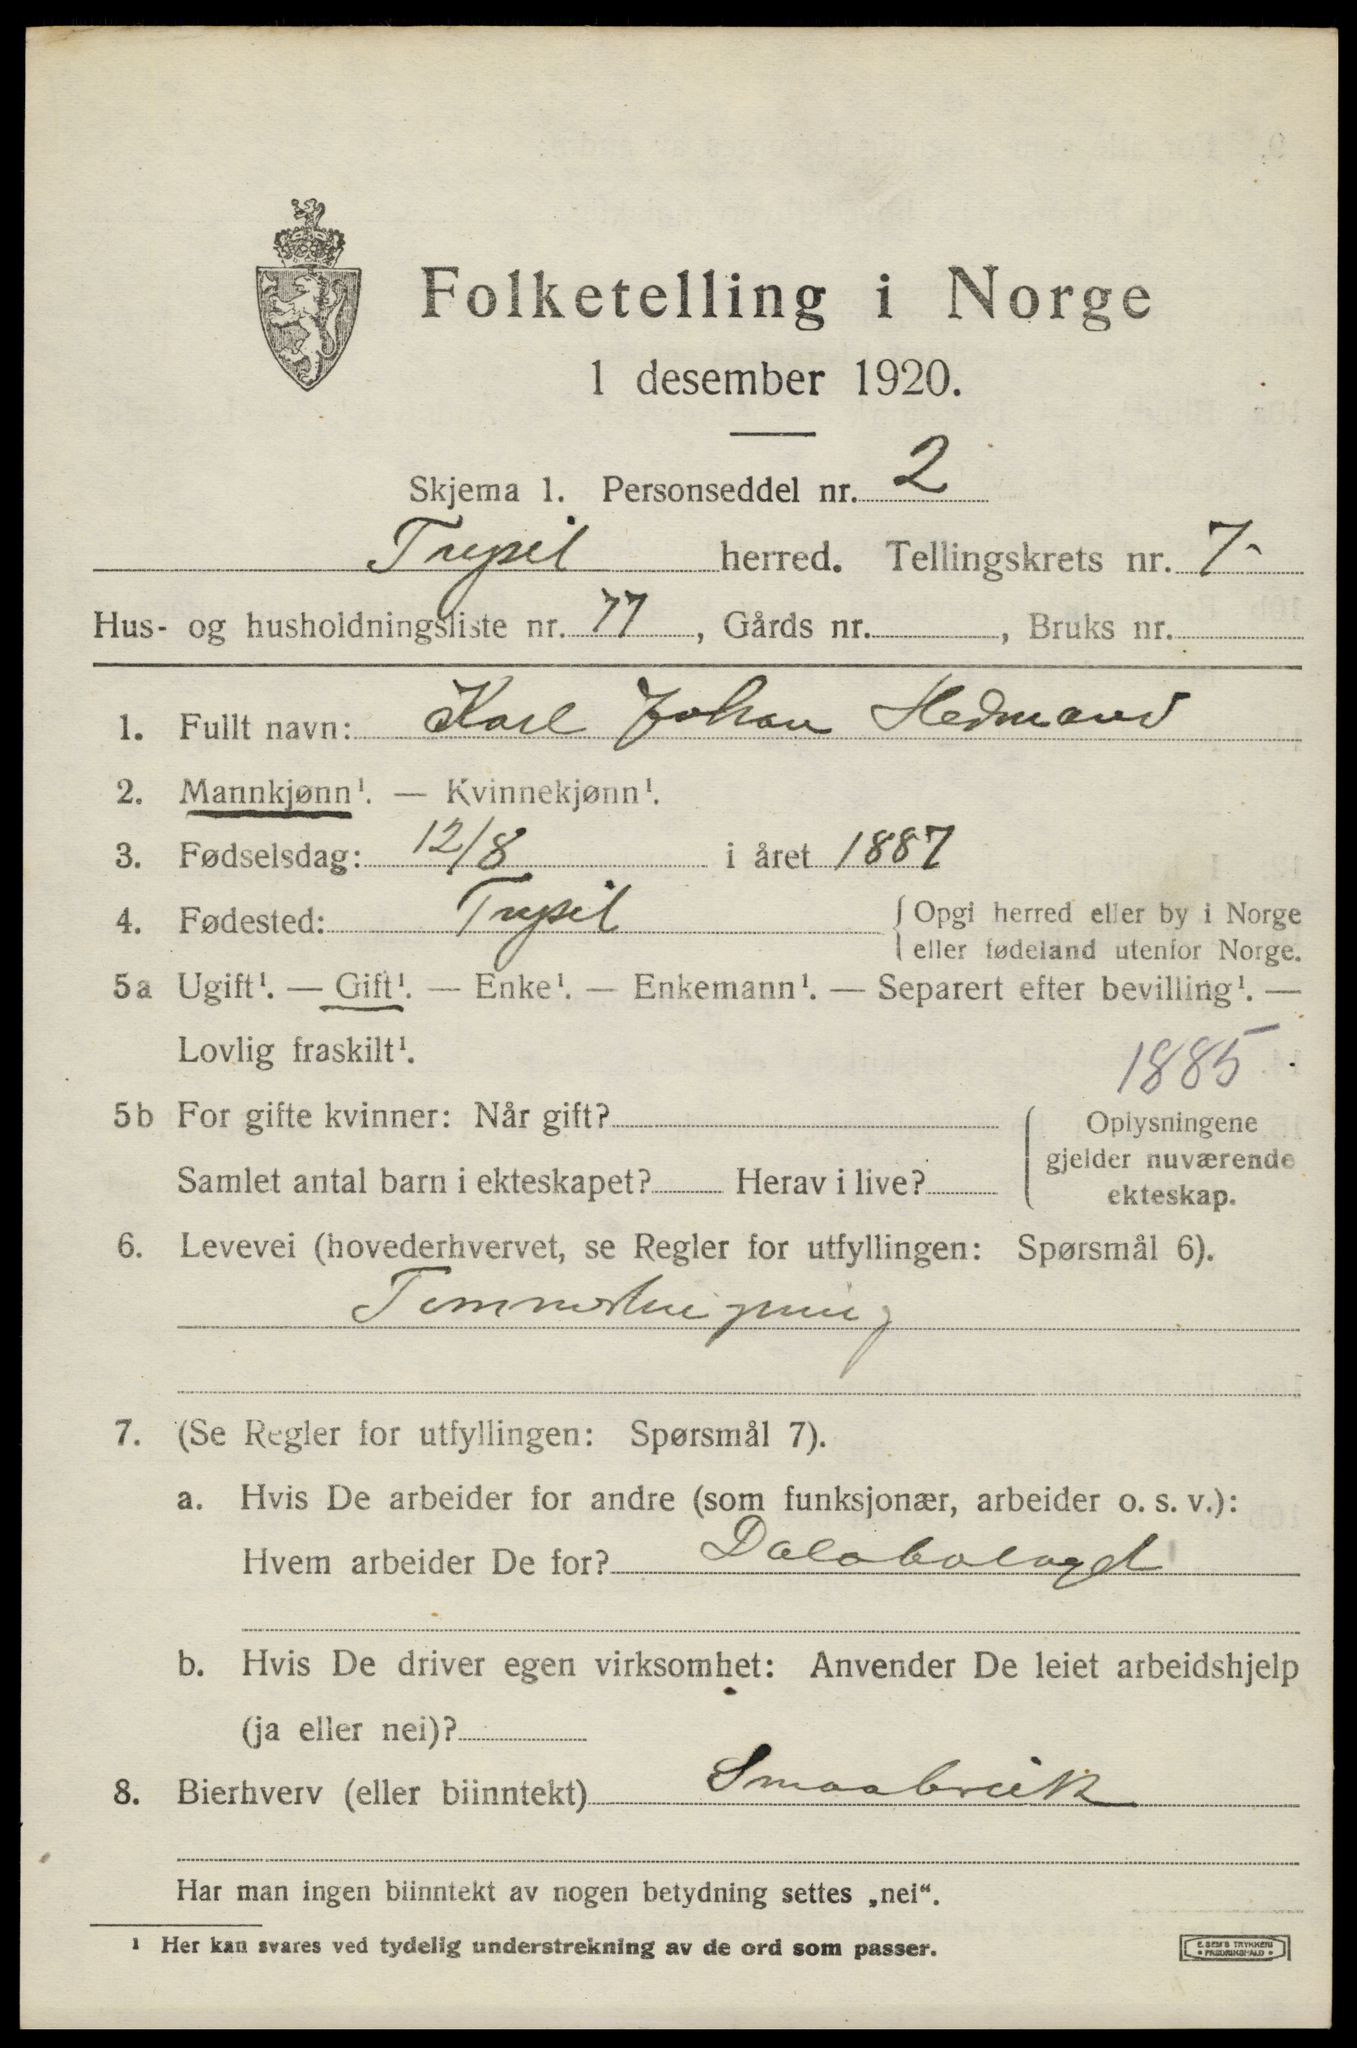 Folketelling i Norge
1 desember 1920.
Skjema 1. Personseddel nr. 2
Trysil herred. Tellingskrets nr. 7
Hus- og husholdningsliste nr. 77, Gårds nr. , Bruks nr.
1. Fullt navn: Karl Johan Hedmand
2. Mannkjønn¹. — Kvinnekjønn¹.
3. Fødselsdag: 12/8 i året 1887
4. Fødested: Trysil
{ Opgi herred eller by i Norge
eller fødeland utenfor Norge.
5a Ugift¹. — Gift¹. — Enke¹. — Enkemann¹. — Separert efter bevilling¹. —
Lovlig fraskilt¹.
1885
5b For gifte kvinner: Når gift?
Samlet antal barn i ekteskapet? Herav i live?
{ Oplysningene
gjelder nuværende
ekteskap.
6. Levevei (hovederhvervet, se Regler for utfyllingen: Spørsmål 6).
7. (Se Regler for utfyllingen: Spørsmål 7).
a. Hvis De arbeider for andre (som funksjonær, arbeider o. s. v.):
Hvem arbeider De for?
b. Hvis De driver egen virksomhet: Anvender De leiet arbeidshjelp
(ja eller nei)?
8. Bierhverv (eller biinntekt) Smaabruk
Har man ingen biinntekt av nogen betydning settes „nei“.
¹ Her kan svares ved tydelig understrekning av de ord som passer.
E. SEM'S TRYKKERI
• FREDRIKSHALD •